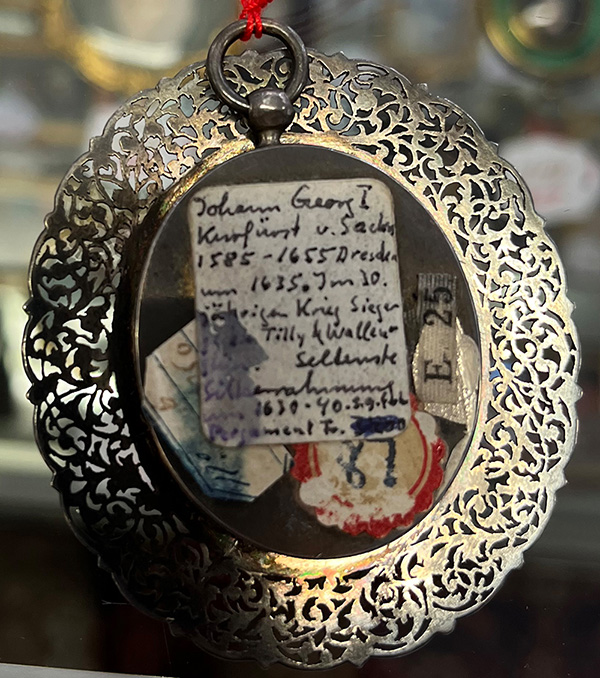 Johann Georg I
Kurfürst v. Sachsen
1585 - 1655 Dresden
um 1635. Im 30.
jährigen Krieg Sieger
Tilly & Wallen-
Seltenste
Silberrahmung
1630-40. s.g. erh
Pergament
E 25